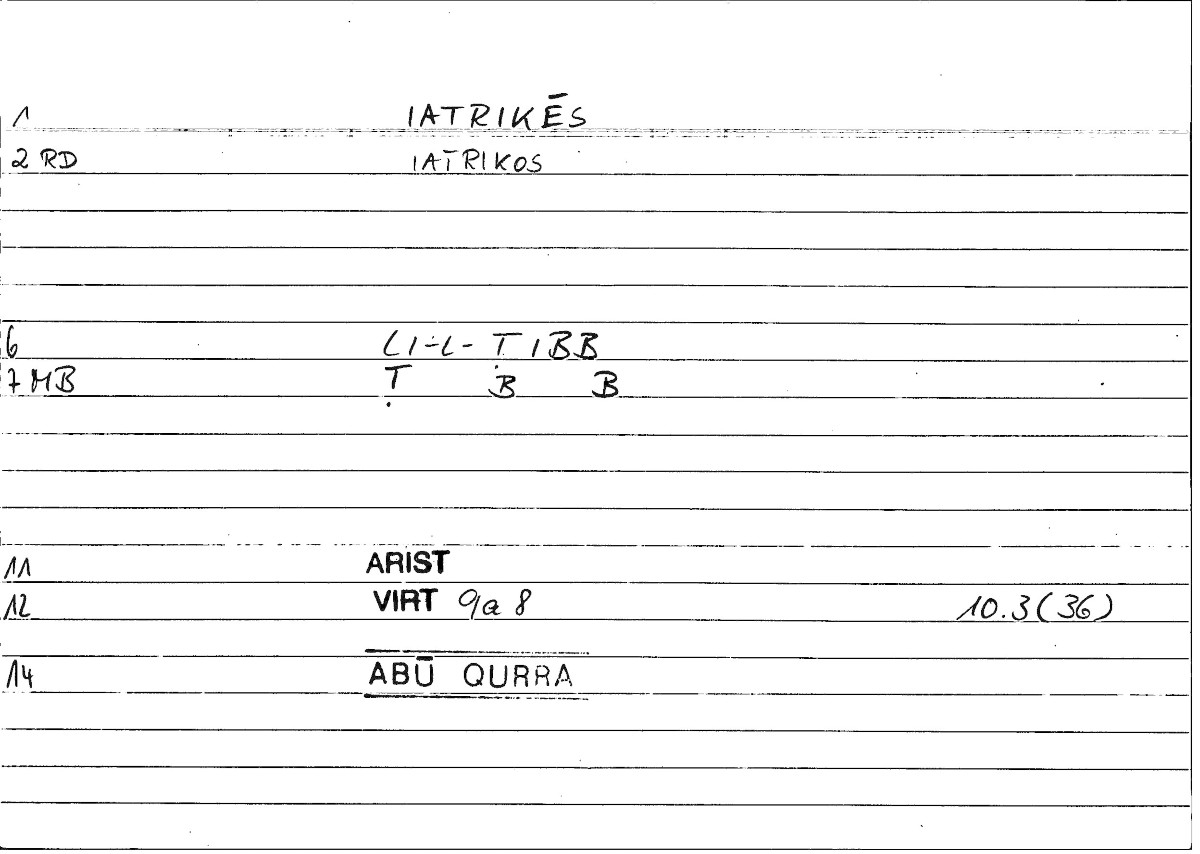 1 IATRIKĒS
2 RD IATRIKOS
6 LI-L-ṬIBB
7 MB Ṭ B B
11 ARIST
12 VIRT 9a 8 10.3(36)
14 ABŪ QURRA